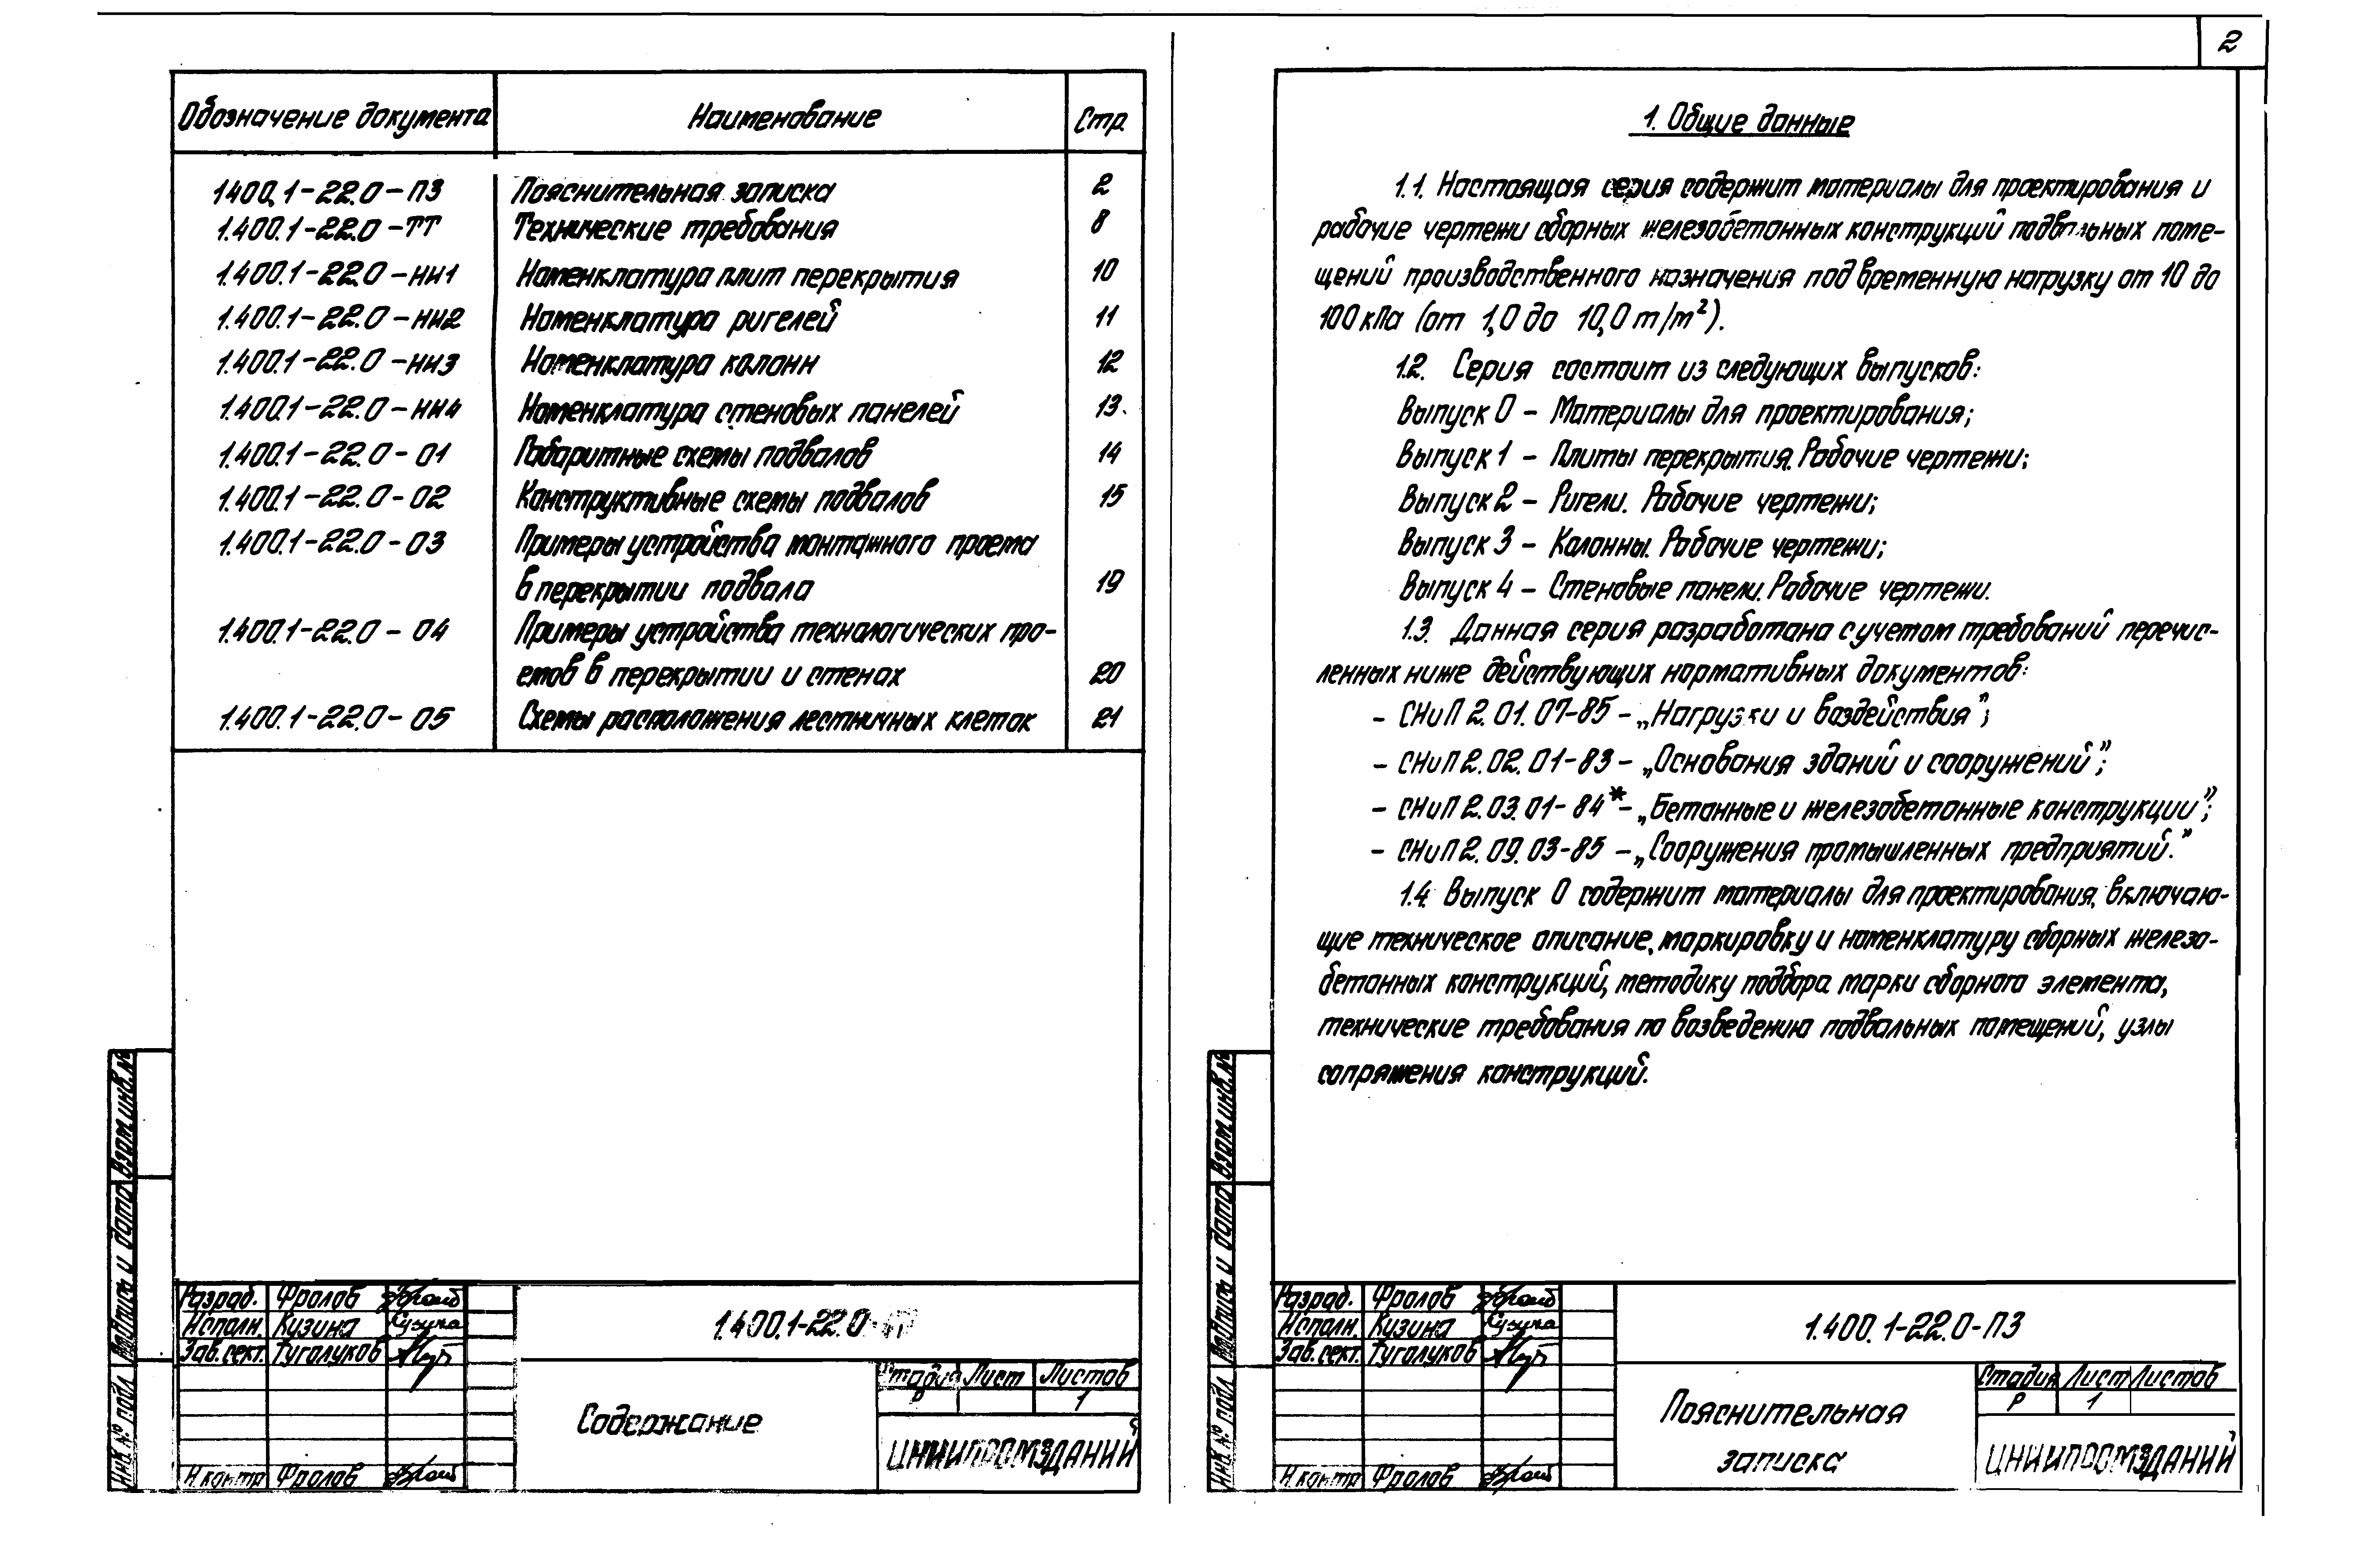 2
Обозначение документа Наименование Стр.
1.400.1-22.0-ПЗ Пояснительная записка 2
1.400.1-22.0-ТТ Технические требования 8
1.400.1-22.0-НИ1 Номенклатура плит перекрытия 10
1.400.1-22.0-НИ2 Номенклатура ригелей 11
1.400.1-22.0-НИ3 Номенклатура колонн 12
1.400.1-22.0-НИ4 Номенклатура стеновых панелей 13
1.400.1-22.0-01 Габаритные схемы подвалов 14
1.400.1-22.0-02 Конструктивные схемы подвалов 15
1.400.1-22.0-03 Примеры устройства монтажного проема
в перекрытии подвала 19
1.400.1-22.0-04 Примеры устройства технологических про-
емов в перекрытии и стенах 20
1.400.1-22.0-05 Схемы расположения лестничных клеток 21
Взам.инв.№
Подпись и дата
Инв.№ подл
Разраб. Фролов
Исполн. Кузина
Зав.сект. Туголуков
Н.контр Фролов
1.400.1-22.0
Содержание
Стадия Лист Листов
Р 1
ЦНИИПРОМЗДАНИЙ
1. Общие данные
1.1. Настоящая серия содержит материалы для проектирования и
рабочие чертежи сборных железобетонных конструкций подвальных поме-
щений производственного назначения под временную нагрузку от 10 до
100 кПа (от 1,0 до 10,0 т/м²).
1.2. Серия состоит из следующих выпусков:
Выпуск 0 – Материалы для проектирования;
Выпуск 1 – Плиты перекрытия. Рабочие чертежи;
Выпуск 2 – Ригели. Рабочие чертежи;
Выпуск 3 – Колонны. Рабочие чертежи;
Выпуск 4 – Стеновые панели. Рабочие чертежи.
1.3. Данная серия разработана с учетом требований перечис-
ленных ниже действующих нормативных документов:
- СНиП 2.01.07-85 – „Нагрузки и воздействия”;
- СНиП 2.02.01-83 – „Основания зданий и сооружений”;
- СНиП 2.03.01-84* – „Бетонные и железобетонные конструкции”;
- СНиП 2.09.03-85 – „Сооружения промышленных предприятий.”
1.4. Выпуск 0 содержит материалы для проектирования, включаю-
щие техническое описание, маркировку и номенклатуру сборных железо-
бетонных конструкций, методику подбора марки сборного элемента,
технические требования по возведению подвальных помещений, узлы
сопряжения конструкций.
Взам.инв.№
Подпись и дата
Инв.№ подл
Разраб. Фролов
Исполн. Кузина
Зав.сект. Туголуков
Н.контр Фролов
1.400.1-22.0-ПЗ
Пояснительная
записка
Стадия Лист Листов
Р 1
ЦНИИПРОМЗДАНИЙ